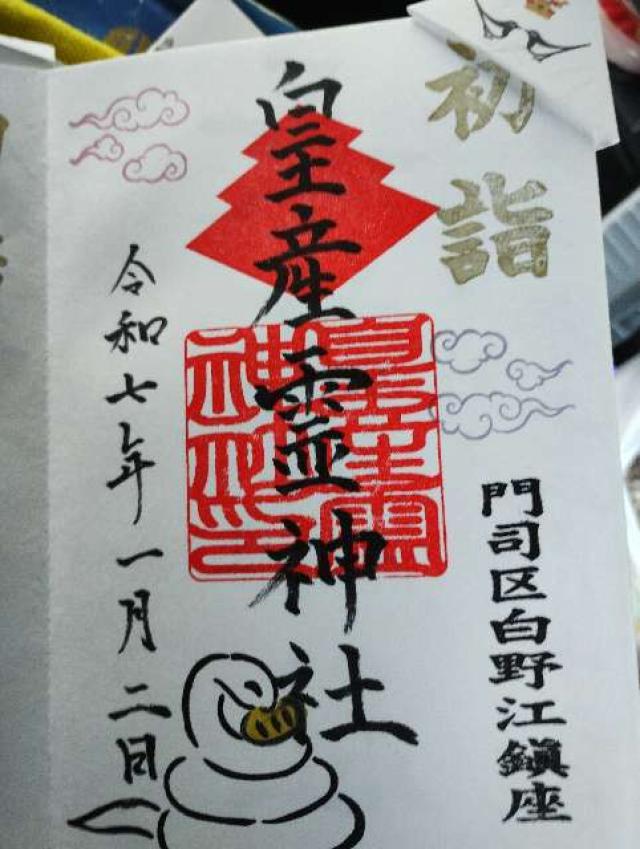 初詣
門司区白野江鎮座
皇産霊神社
皇産霊
神社印
令和七年一月二日